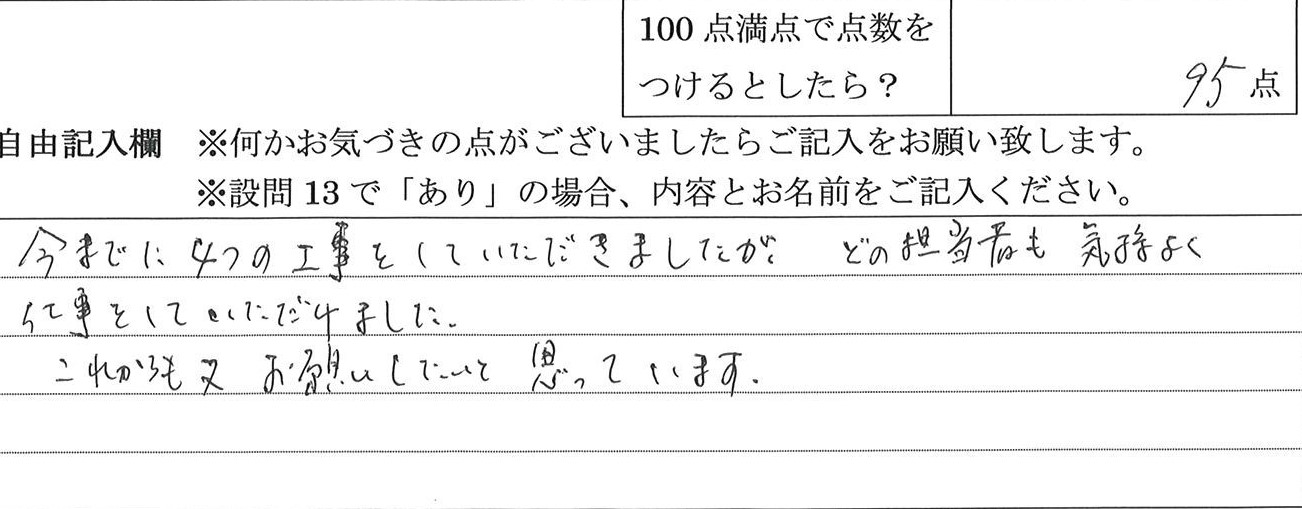 100 点満点で点数を
つけるとしたら？
95 点
自由記入欄 ※何かお気づきの点がございましたらご記入をお願い致します。
※設問 13 で「あり」の場合、内容とお名前をご記入ください。
今までに 4つの工事をしていただきましたが、どの担当者も気持よく
仕事をしていただけました。
これからも又お願いしたいと思っています。